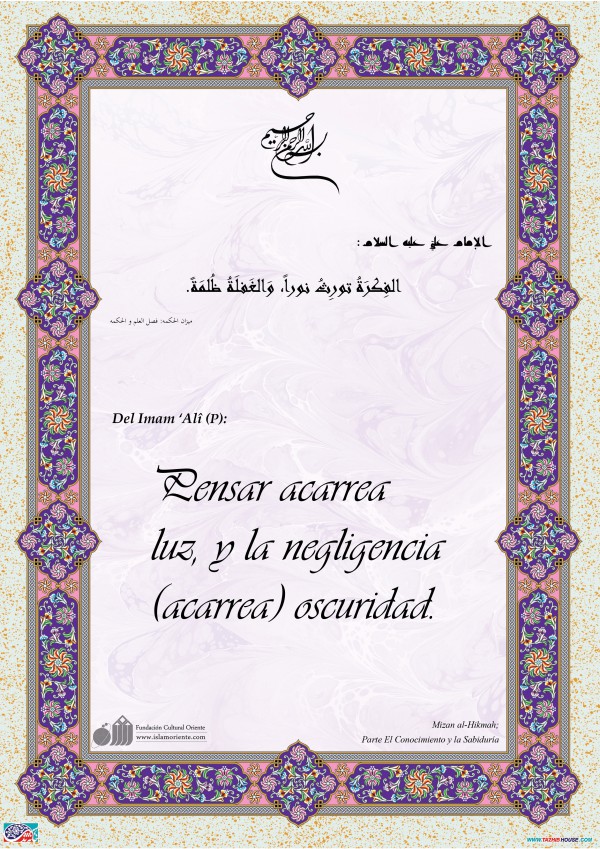 بسم الله الرحمن الرحيم
الإمام علي عليه السلام :
الفِكرَةُ تورِثُ نوراً، وَالغَفلَةُ ظُلمَةً.
میزان الحکمه: فصل العلم و الحکمه
Del Imam ‘Alî (P):
Pensar acarrea
luz, y la negligencia
(acarrea) oscuridad.
Fundación Cultural Oriente
www.islamoriente.com
Mizan al-Hikmah;
Parte El Conocimiento y la Sabiduría
WWW.TAZHIBHOUSE.COM